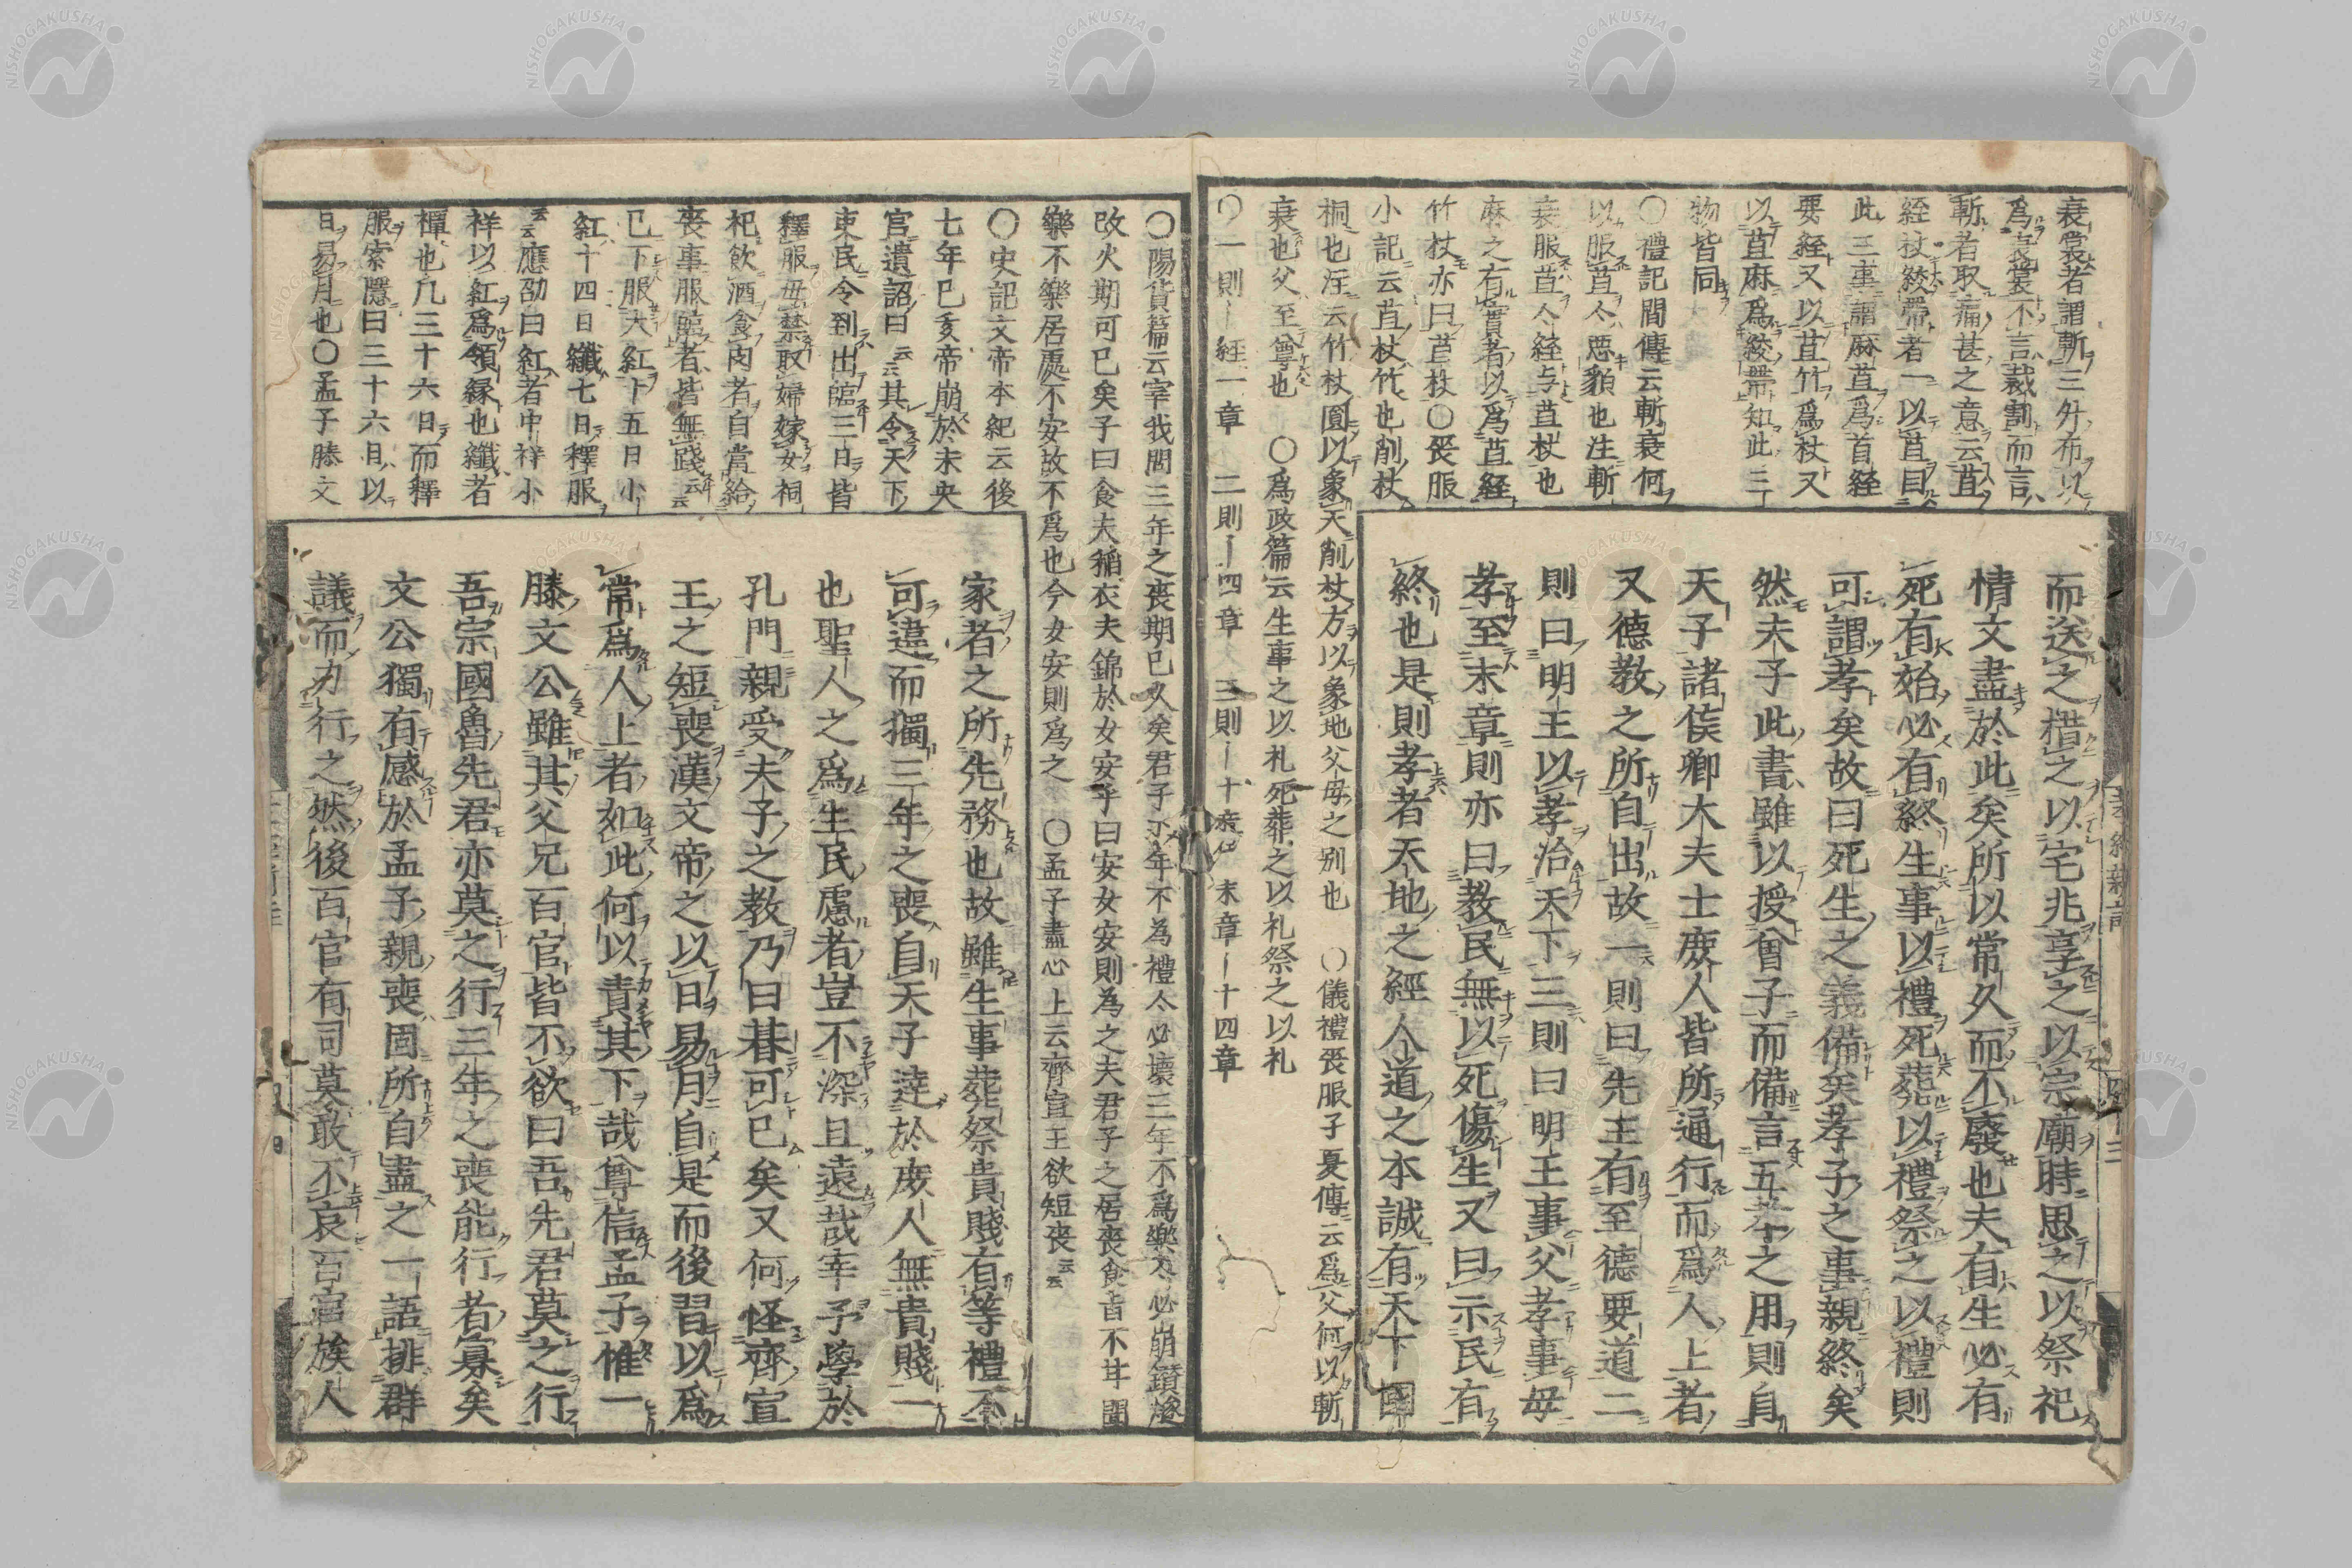 衰裳者謂斬三外布以
爲衰裳不言裁割而言
斬者取痛甚之意云苴
絰杖絞帶者一以苴目
此三事謂麻苴爲首絰
要絰又以苴竹爲杖又
以苴麻爲絞帶知此三
物皆同
〇禮記間傳云斬衰何
以服苴々惡貌也注斬
衰服苴々絰与苴杖也
麻之有實者以爲苴絰
竹杖亦曰苴杖〇喪服
小記云苴杖竹也削杖
桐也注云竹杖圓以象天削杖方以象地父母之别也 〇儀禮喪服子夏傳云爲父何以斬
衰也父至尊也 〇爲政篇云生事之以礼死葬之以礼祭之以礼
〇一則ー經一章 二則ー四章 三則ー十章 末章ー十四章
而送之措之以宅兆享之以宗廟時思之以祭祀
情文盡於此矣所以常久而不廢也夫有生必有
死有始必有終生事以禮死葬以禮祭之以禮則
可謂孝矣故曰死生之義備矣孝子之事親終矣
然夫子此書雖以授曾子而備言五孝之用則自
天子諸侯卿大夫士庶人皆所通行而爲人上者
又德教之所自出故一則曰先王有至德要道二
則曰明王以孝治天下三則曰明王事父孝事母
孝至末章則亦曰教民無以死傷生又曰示民有
終也是則孝者天地之經人道之本誠有天下國
〇陽貨篇云宰我問三年之喪期已久矣君子三年不為禮々必壞三年不爲樂々必崩鑚燧
改火期可已矣子曰食夫稲衣夫錦於女安乎曰安女安則為之夫君子之居喪食旨不甘聞
樂不樂居處不安故不爲也今女安則爲之 〇孟子盡心上云齊宣王欲短喪云云
〇史記文帝本紀云後
七年巳亥帝崩於未央
官遺詔曰云云其令天下
吏民令到出臨三日皆
釋服毋禁取婦嫁女祠
祀飲酒食肉者自當給
喪事服臨者皆無踐云云
已下服大紅十五日小
紅十四日纎七日釋服
云云應劭曰紅者中祥小
祥以紅爲領縁也纎者
禫也凡三十六日而釋
服索隱曰三十六日以
日易月也〇孟子滕文
家者之所先務也故雖生事葬祭貴賤有等禮不
可違而獨三年之喪自天子達於庶人無貴賤一
也聖人之爲生民慮者豈不深且遠哉宰予學於
孔門親受夫子之教乃曰朞可已矣又何怪齊宣
王之短喪漢文帝之以日易月自是而後習以爲
常爲人上者如此何以責其下哉尊信孟子惟一
滕文公雖其父兄百官皆不欲曰吾先君莫之行
吾宗國魯先君亦莫之行三年之喪能行者寡矣
文公獨有感於孟子親喪固所自盡之一語排群
議而力行之然後百官有司莫敢不哀百官族人